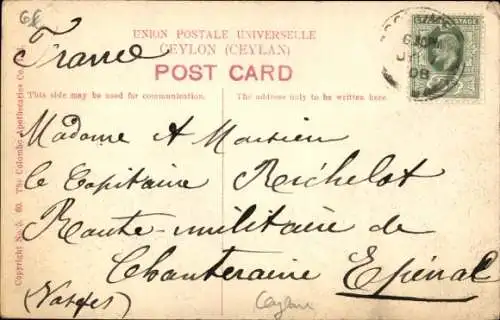 66
France
UNION POSTALE UNIVERSELLE
CEYLON (CEYLAN)
POST CARD
This side may be used for communication.
The address only to be written here.
POSTAGE
08
Madame & Monsieur
le Capitaine Richelot
Route-militaire de
Chanteraine Epinal
(Vosges)
Ceylan
Copyright No. 60. The Colombo Apothecaries Co.